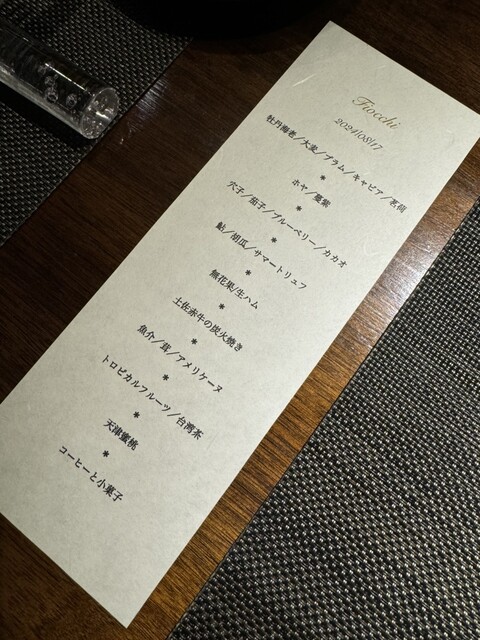 Fiocchi
2024/08/17
牡丹海老／大麦／プラム／キャビア／茗荷
*
ホヤ／慈紫
*
穴子／茄子／ブルーベリー／カカオ
*
鮎／胡瓜／サマートリュフ
*
無花果/生ハム
*
土佐赤牛の炭火焼き
*
魚介／茸／アメリケーヌ
*
トロピカルフルーツ／台湾茶
*
天津蜜桃
*
コーヒーと小菓子